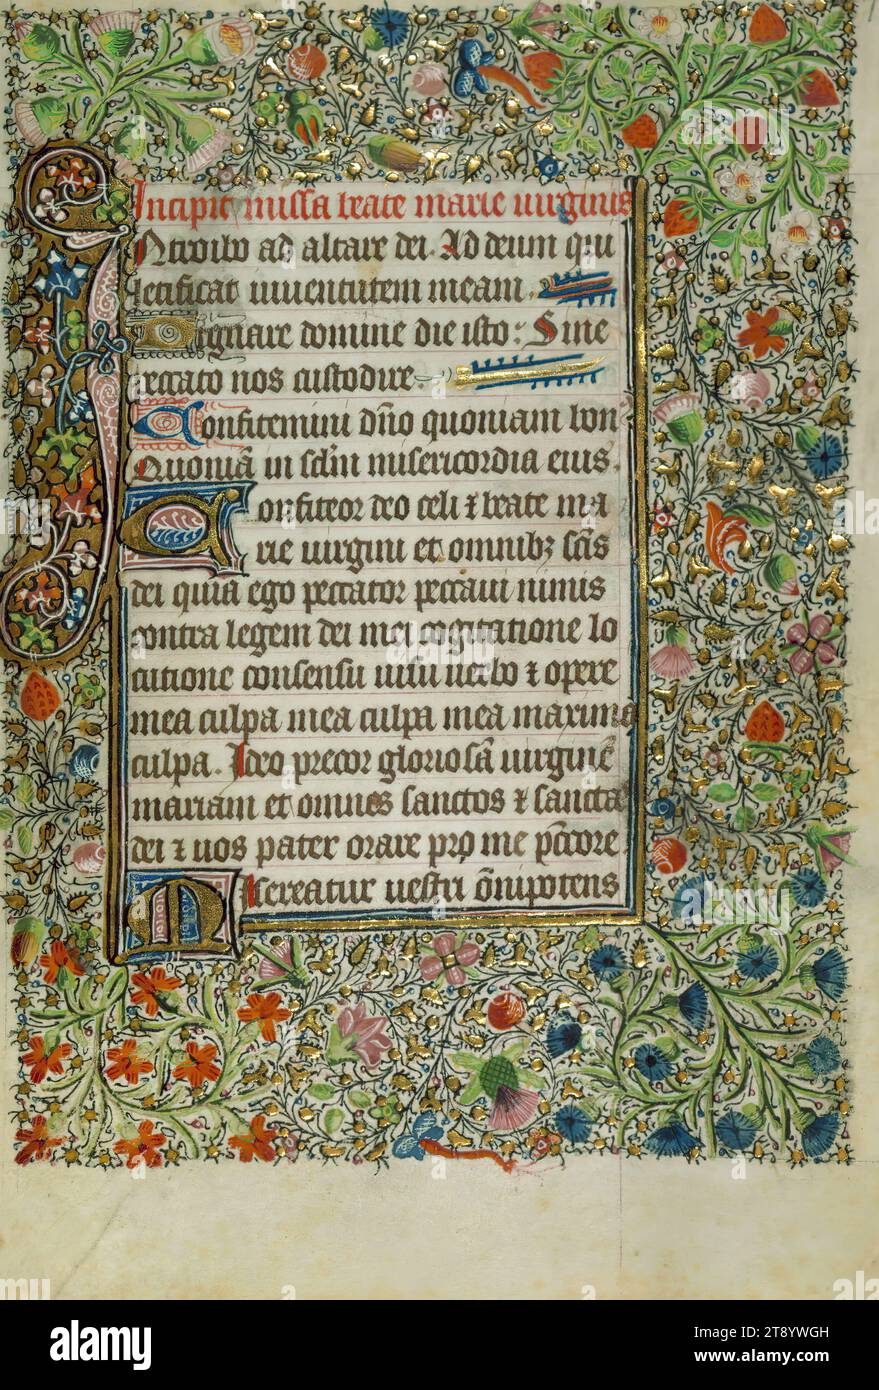 Incipit missa beate marie uirginis
Introibo ad altare dei. Ad deum qui
letificat iuuentutem meam.
Dignare domine die isto: Sine
peccato nos custodire
Confitemini dño quoniam bon9
Quoniã in sclm misericordia eius.
Confiteor deo celi ⁊ beate ma
rie uirgini et omnibꝫ scis
dei quia ego peccator peccaui nimis
contra legem dei mei cogitatione lo
cutione consensu uisu uerbo ⁊ opere
mea culpa mea culpa mea maxima
culpa. Ideo precor gloriosã uirginẽ
mariam et omnes sanctos ⁊ sanctas
dei ⁊ uos pater orare pro me pctore.
Misereatur uestri õnipotens
alamy
Image ID: 2T8YWGH
www.alamy.com